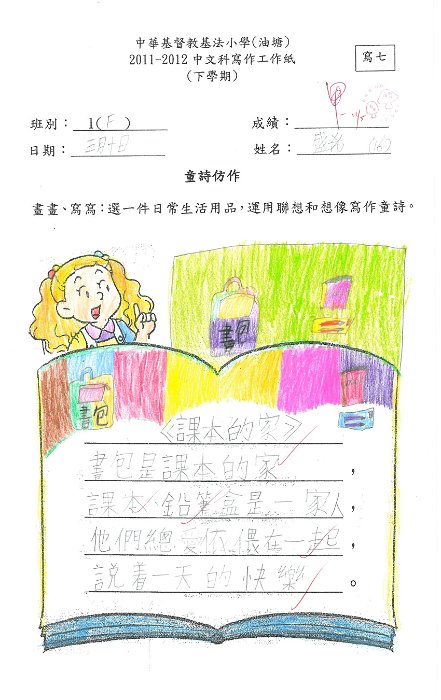 中華基督教基法小學(油塘)
2011-2012 中文科寫作工作紙
(下學期)
寫七
班別： 1( F )
成績：
日期： 三月十日
姓名： (16)
童詩仿作
畫畫、寫寫：選一件日常生活用品，運用聯想和想像寫作童詩。
書包
書包
《課本的家》
書包是課本的家，
課本、鉛筆盒是一家人，
他們總愛依偎在一起，
說着一天的快樂。